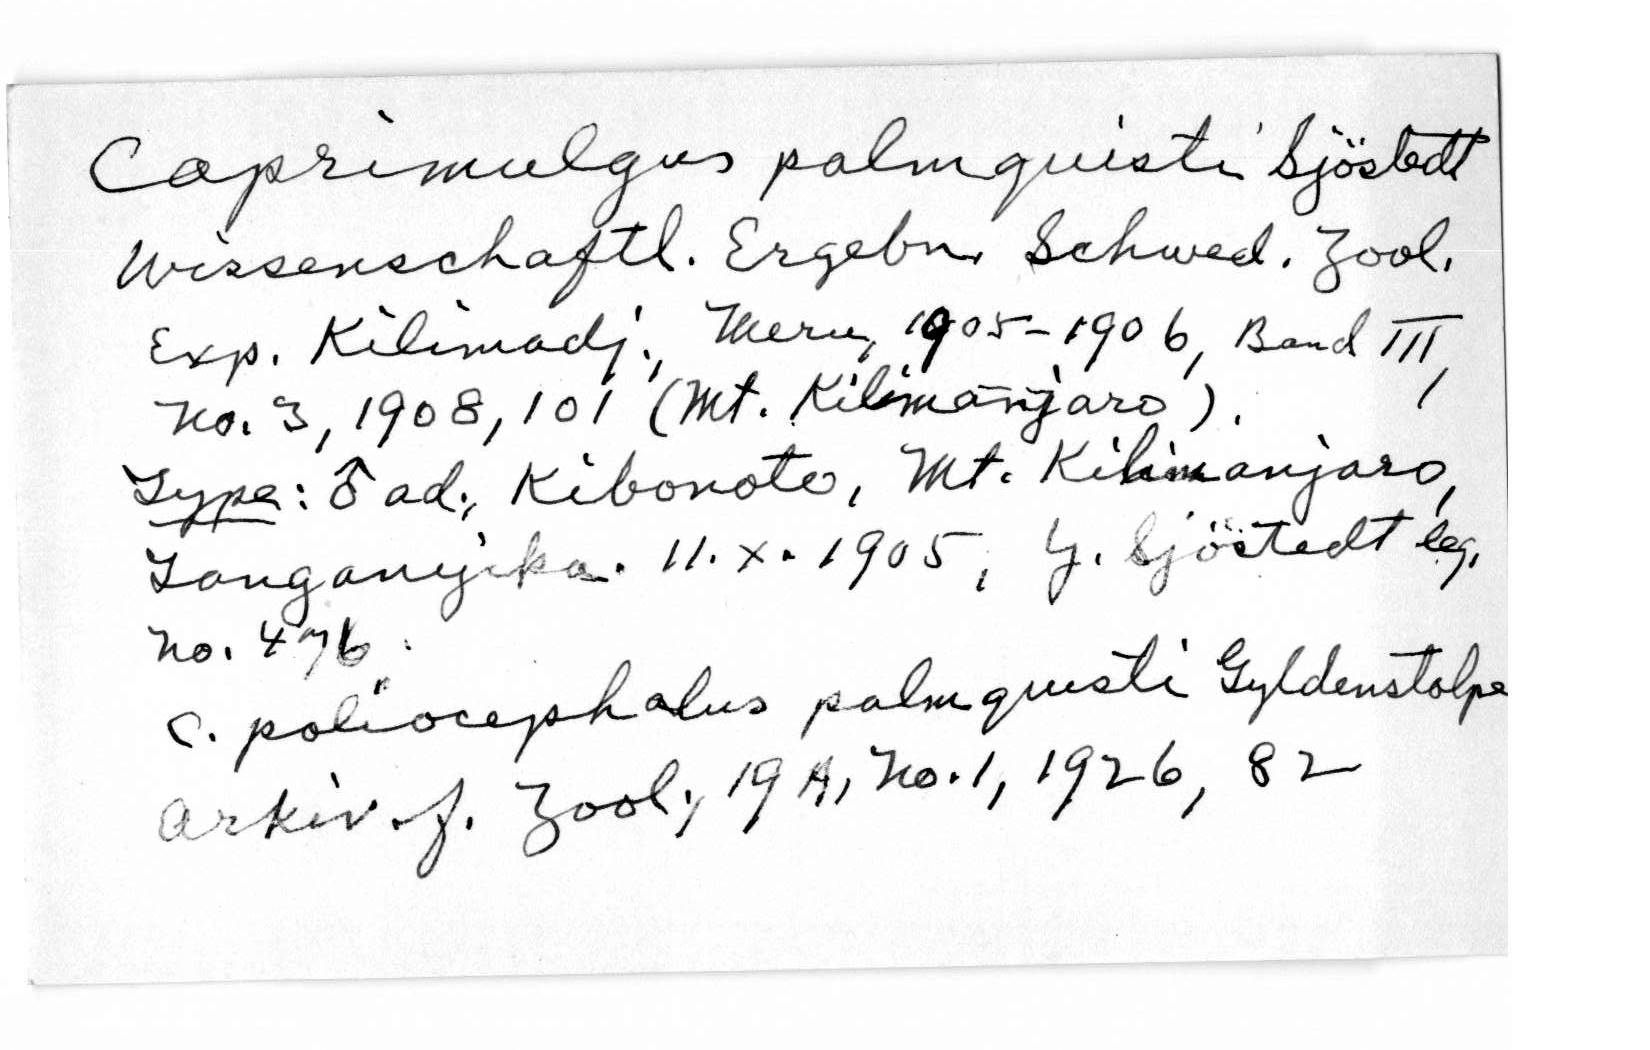 Caprimulgus palmquisti Sjöstedt
Wissenschaftl. Ergebn. Schwed. Zool.
Exp. Kilimadj., Meru, 1905-1906, Band III,
No. 3, 1908, 101 (Mt. Kilimanjaro).
Type: ♂ ad., Kibonoto, Mt. Kilimanjaro,
Tanganyika. 11.X.1905, Y. Sjöstedt leg.
No. 476.
C. poliocephalus palmquisti Gyldenstolpe
Arkiv. f. Zool., 19 A, No. 1, 1926, 82